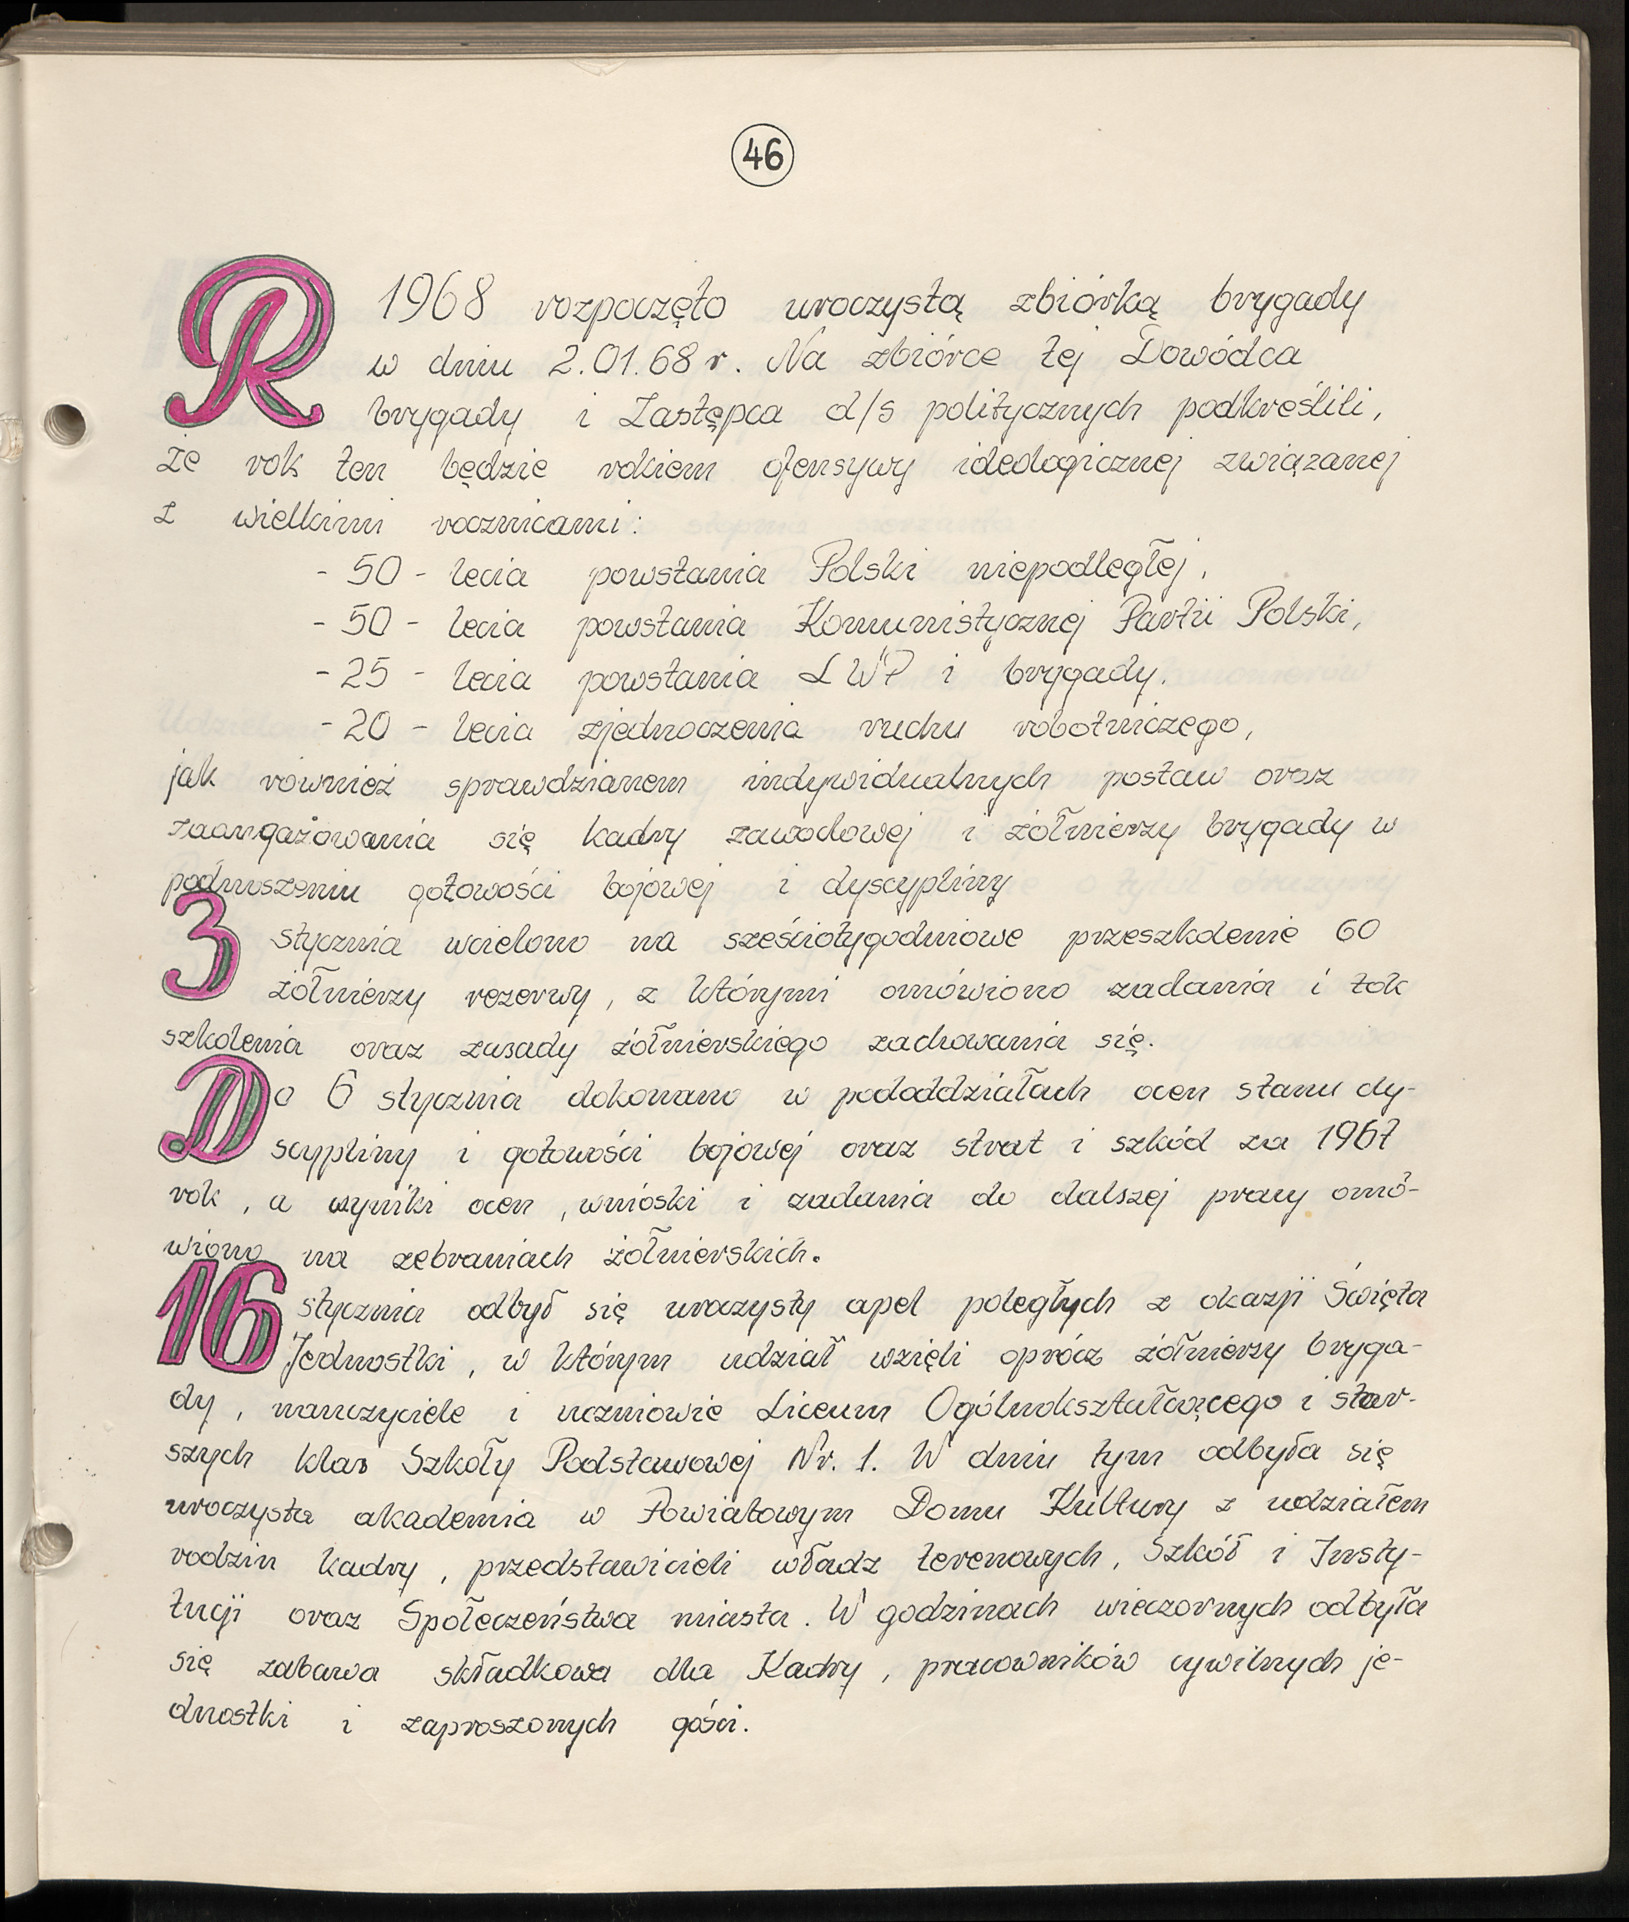 46
R 1968 rozpoczęto uroczystą zbiórką brygady
w dniu 2.01.68 r. Na zbiórce tej Dowódca
brygady i Zastępca d/s politycznych podkreślili,
że rok ten będzie rokiem ofensywy ideologicznej związanej
z wielkimi rocznicami:
- 50 - lecia powstania Polski niepodległej,
- 50 - lecia powstania Komunistycznej Partii Polski,
- 25 - lecia powstania LWP i brygady.
- 20 - lecia zjednoczenia ruchu robotniczego,
jak również sprawdzianem indywidualnych postaw oraz
zaangażowania się kadry zawodowej i żołnierzy brygady w
podnoszeniu gotowości bojowej i dyscypliny
3 stycznia wcielono na sześciotygodniowe przeszkolenie 60
żołnierzy rezerwy, z którymi omówiono zadania i tok
szkolenia oraz zasady żołnierskiego zachowania się.
Do 6 stycznia dokonano w pododdziałach ocen stanu dy-
scypliny i gotowości bojowej oraz strat i szkód za 1967
rok, a wyniki ocen, wnioski i zadania do dalszej pracy omó-
wiono na zebraniach żołnierskich.
16 stycznia odbył się uroczysty apel poległych z okazji Święta
Jednostki, w którym udział wzięli oprócz żołnierzy bryga-
dy, nauczyciele i uczniowie Liceum Ogólnokształcącego i star-
szych klas Szkoły Podstawowej Nr. 1. W dniu tym odbyła się
uroczysta akademia w Powiatowym Domu Kultury z udziałem
rodzin kadry, przedstawicieli władz terenowych, Szkół i Insty-
tucji oraz Społeczeństwa miasta. W godzinach wieczornych odbyła
się zabawa składkowa dla Kadry, pracowników cywilnych je-
dnostki i zaproszonych gości.